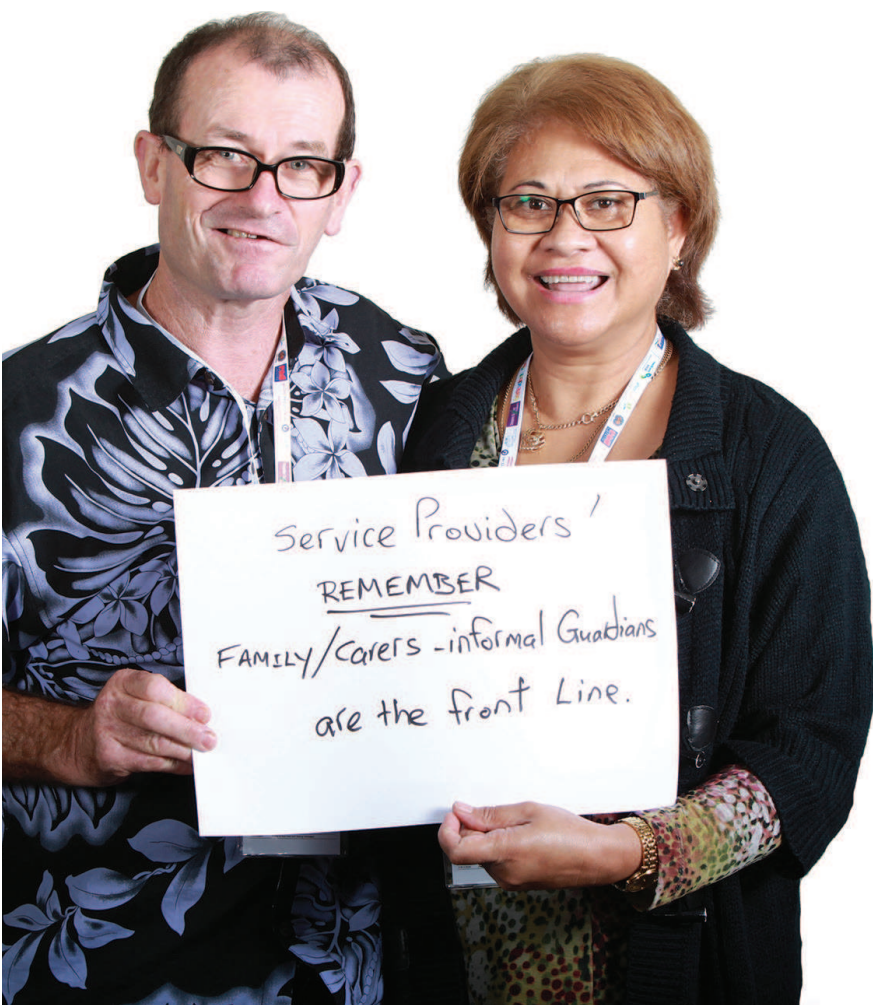 Service Providers'
REMEMBER
FAMILY/Carers - informal Guardians
are the front Line.